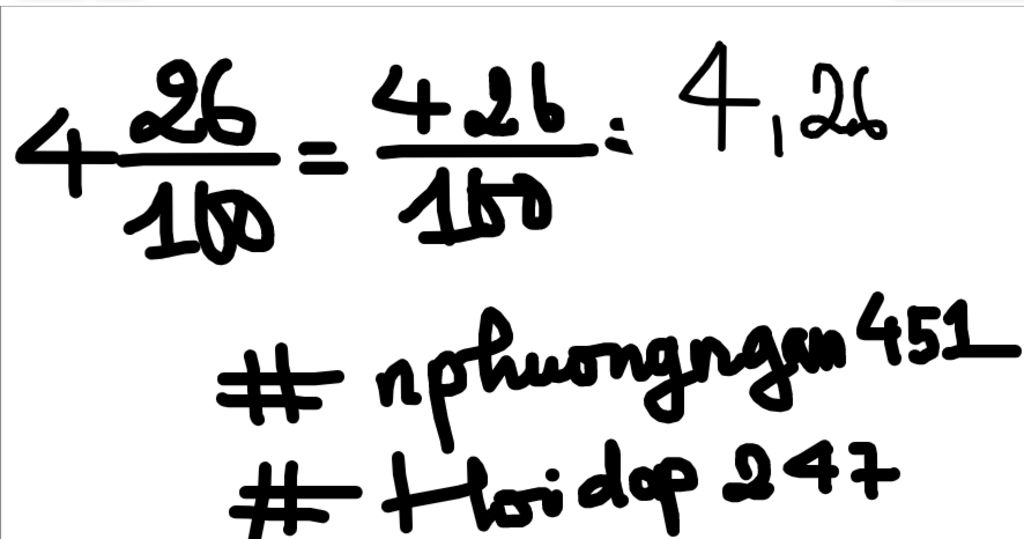 4 26/100 = 426/100 = 4,26
# nphuongngan451
# Hoidap247